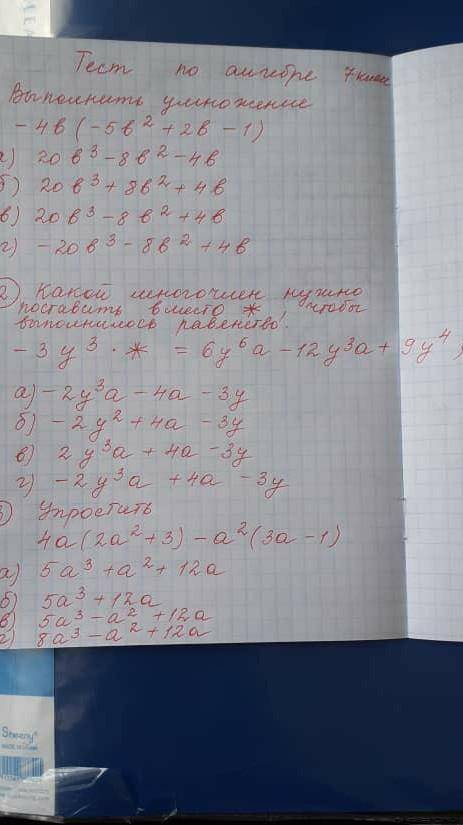 Тест по алгебре 7 класс
Выполнить умножение
-4в(-5в²+2в-1)
а) 20в³-8в²-4в
б) 20в³+8в²+4в
в) 20в³-8в²+4в
г) -20в³-8в²+4в
2) Какой многочлен нужно
поставить вместо *, чтобы
выполнилось равенство!
-3y³·* = 6y⁶a-12y³a+9y⁴,
а) -2y³a-4a-3y
б) -2y²+4a-3y
в) 2y³a+4a-3y
г) -2y³a+4a-3y
3) Упростить
4a(2a²+3)-a²(3a-1)
а) 5a³+a²+12a
б) 5a³+12a
в) 5a³-a²+12a
г) 8a³-a²+12a
Sheeny®